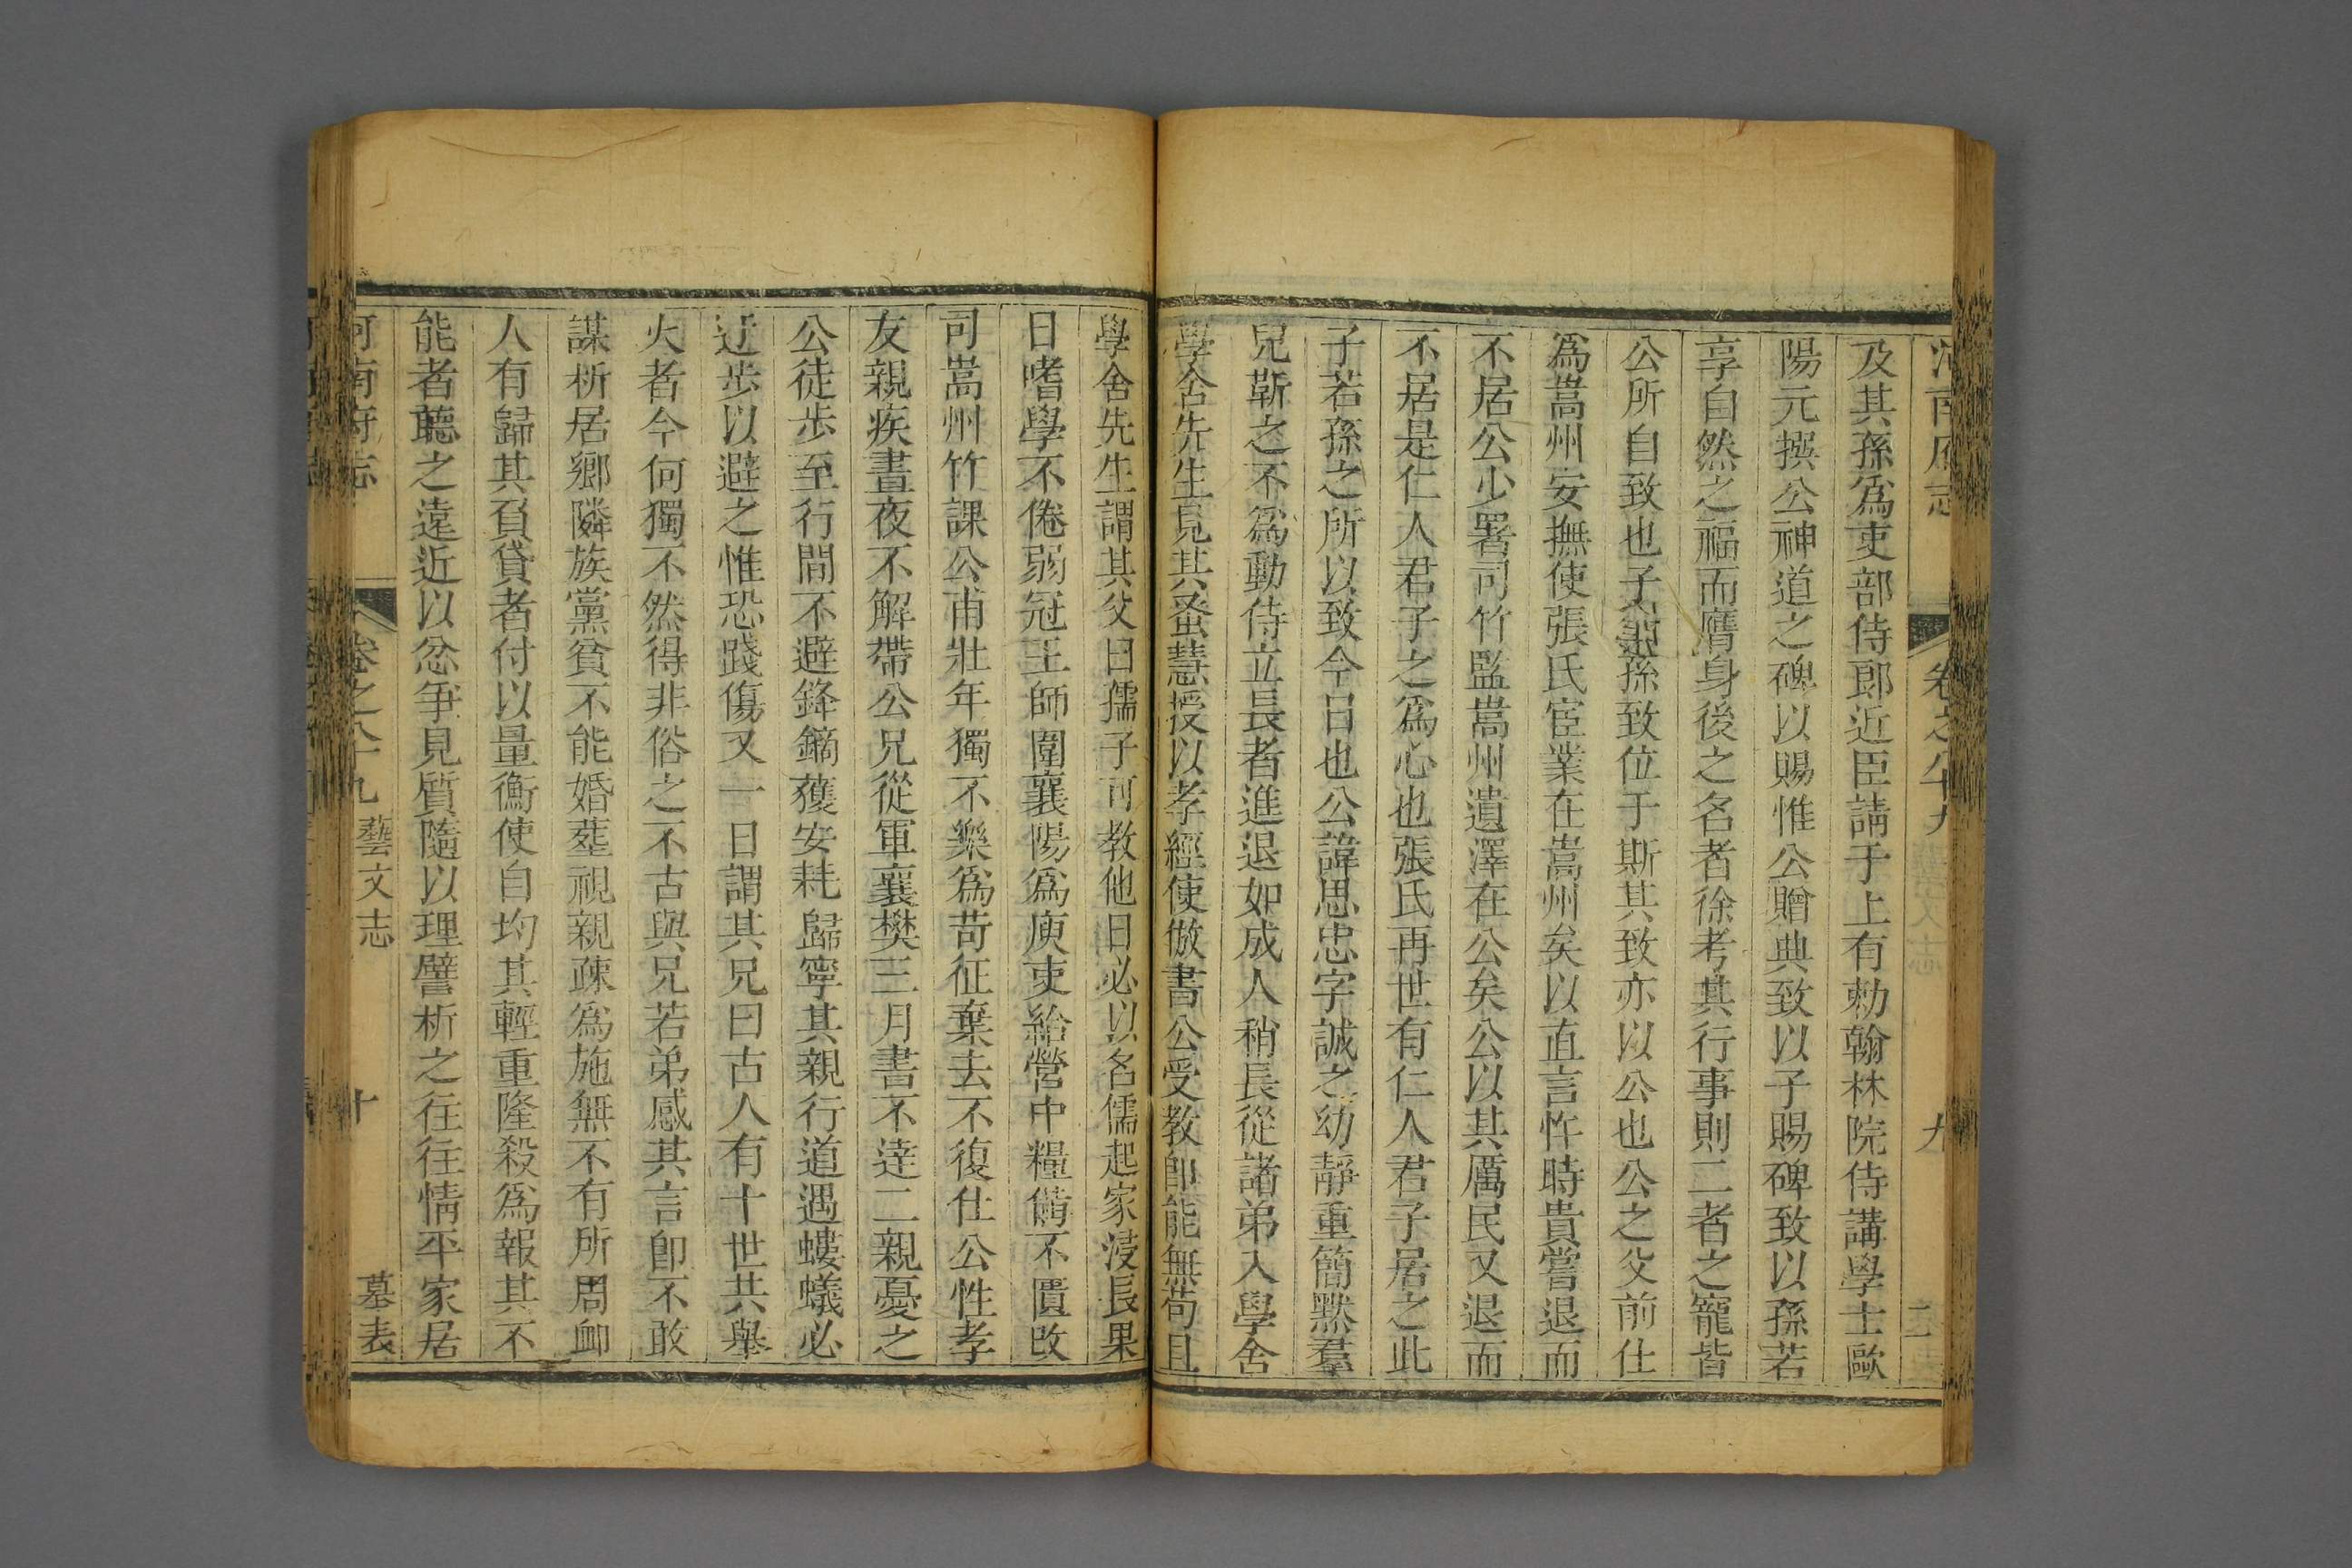 河南府志 卷之八十九 九
及其孫爲吏部侍郎近臣請于上有勅翰林院侍講學士歐
陽元撰公神道之碑以賜惟公贈典致以子賜碑致以孫若
享自然之福而膺身後之名者徐考其行事則二者之寵皆
公所自致也子孫致位于斯其致亦以公也公之父前仕
爲嵩州安撫使張氏宦業在嵩州矣以直言忤時貴嘗退而
不居公少署司竹監嵩州遺澤在公矣公以其厲民又退而
不居是仁人君子之爲心也張氏再世有仁人君子居之此
子若孫之所以致今日也公諱思忠字誠之幼靜重簡默羣
兒靳之不爲動侍立長者進退如成人稍長從諸弟入學舍
學舍先生見其蚤慧授以孝經使倣書公受教卽能無苟且
學舍先生謂其父曰孺子可教他日必以名儒起家浸長果
日嗜學不倦弱冠王師圍襄陽爲庾吏給營中糧備不匱改
司嵩州竹課公甫壯年獨不樂爲苛征棄去不復仕公性孝
友親疾晝夜不解帶公兄從軍襄樊三月書不達二親憂之
公徒步至行間不避鋒鏑獲安耗歸寧其親行道遇螻蟻必
迂步以避之惟恐踐傷又一日謂其兄曰古人有十世共舉
火者今何獨不然得非俗之不古與兄若弟感其言卽不敢
謀析居鄉隣族黨貧不能婚塟視親疎爲施無不有所周卹
人有歸其負貸者付以量衡使自均其輕重隆殺爲報其不
能者聽之遠近以忿爭見質隨以理譬析之往往情平家居
河南府志 卷之八十九 藝文志 十 墓表